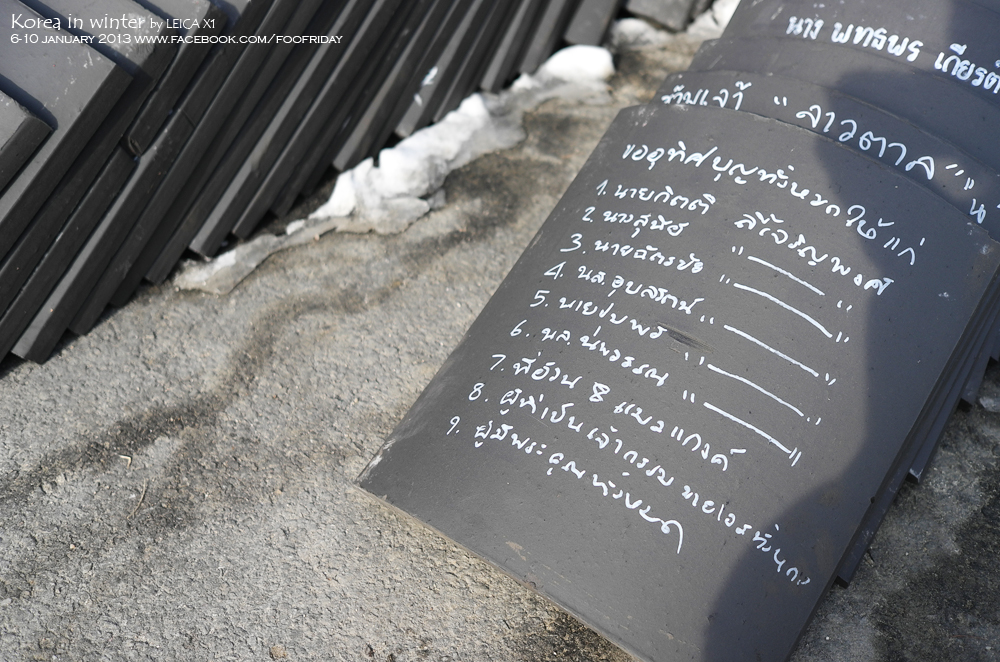 Korea in winter by LEICA X1
6-10 JANUARY 2013 WWW.FACEBOOK.COM/FOOFRIDAY
นาง พุทธพร เกียรติ
"ลาวตาล"
ขออุทิศบุญทั้งหมดให้แก่
1. นายกิตติ ลีเจริญพงศ์
2. นางสุนีย์ " ——— "
3. นายฉัตรชัย " ——— "
4. นส. อุบลรัตน์ " ——— "
5. นายชนพร " ——— "
6. นส. " ——— "
7. พี่อ้วน 8 แมวแก๊งค์
8. ผู้ที่เป็นเจ้ากรรม นายเวรทั้งหมด
9. ผู้มีพระคุณทั้งหมด